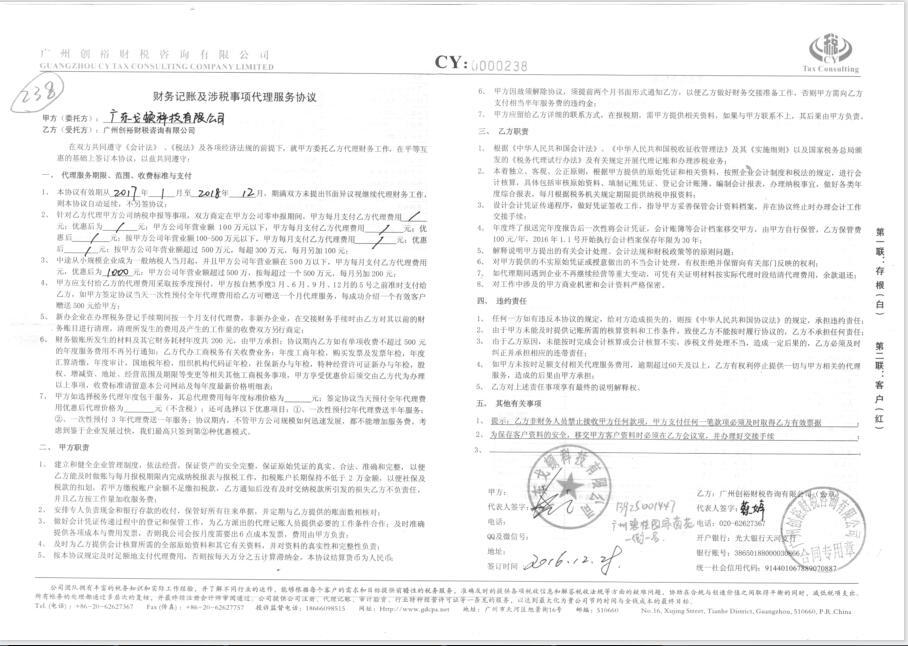 广州创裕财税咨询有限公司
GUANGZHOU CY TAX CONSULTING COMPANY LIMITED
CY:0000238
CY
Tax Consulting
238
财务记账及涉税事项代理服务协议
甲方（委托方）：
科技有限公司
乙方（受托方）：广州创裕财税咨询有限公司
在双方共同遵守《会计法》、《税法》及各项经济法规的前提下，就甲方委托乙方代理财务工作，在平等互
惠的基础上签订本协议，以兹共同遵守：
一、 代理服务期限、范围、收费标准与支付
1、 本协议有效期从2017年1月至2018年12月，期满双方未提出书面异议视继续代理财务工作，
则本协议自动延续，不另签协议；
2、 针对乙方代理甲方公司纳税申报等事项，双方商定在甲方公司零申报期间，甲方每月支付乙方代理费用/
元；优惠后为/元；甲方公司年营业额 100 万元以下，甲方每月支付乙方代理费用/元；优
惠后/元；按甲方公司年营业额100-500 万元以下，甲方每月支付乙方代理费用/元；优惠
后/元；按甲方公司年营业额超过 500 万元，每超 300 万元，每月另加 100 元；
3、 中途从小规模企业成为一般纳税人当月起，并且甲方公司年营业额在 500 万以下，甲方每月支付乙方代理费用
元，优惠后为1000元；甲方公司年营业额超过 500 万，按每超过一个 500 万元，每月另加 200 元；
4、 甲方应支付给乙方的代理费用采取按季度预付，甲方按自然季度3月、6月、9月、12月的5号之前准时支付给
乙方，如甲方签定协议当天一次性预付全年代理费用给乙方可赠送一个月代理服务，每成功介绍一个有效客户
赠送 500 元给甲方；
5、 新办企业在办理税务登记手续期间按一个月支付代理费，非新办企业，在交接财务手续时由乙方对其以前的财
务账目进行清理，清理所发生的费用及产生的工作量的收费双方另行商定；
6、 财务做账所发生的材料及其它财务耗材年度共 200 元，由甲方承担；协议期内乙方如有单项收费不超过 500 元
的年度服务费用不再另行通知；乙方代办工商税务有关收费业务：年度工商年检，购买发票及发票年检，年度
汇算清缴，年度审计，国地税年检，组织机构代码证年检，社保新办与年检，特种经营许可证新办与年检，股
权、增减资、地址、经营范围及期限等变更等相关其他工商税务事项，甲方享受优惠价后须交由乙方代为办理
以上事项，收费标准请留意本公司网站及每年度最新价格明细表；
7、 甲方如选择税务代理年度包干服务，其总代理费用每年度标准价格为______元；签定协议当天预付全年代理费
用优惠后代理价格为______元（不含税）；还可选择以下优惠项目：①、一次性预付2年代理费送半年服务；
②、一次性预付 3 年代理费送一年服务；协议期内，不管甲方公司规模如何迅速发展，都不能增加服务费，考
虑到鉴于企业发展过快，我们最高只签到第②种优惠模式。
二、 甲方职责
1、 建立和健全企业管理制度，依法经营，保证资产的安全完整，保证原始凭证的真实、合法、准确和完整，以便
乙方能及时做账与每月报税期限内完成纳税报表与报税工作，扣税账户长期保持不低于 2 万金额，以便社保及
税款的扣划，若甲方缴税账户余额不足缴扣税款，乙方通知后没有及时交纳税款所引发的损失乙方不负责任，
并且乙方按工作量加收服务费；
2、 安排专人负责现金和银行存款的收付，保管好所有往来单据，并定期与乙方提供的账面数相核对；
3、 做好会计凭证传递过程中的登记和保管工作，为乙方派出的代理记账人员提供必要的工作条件合作；及时准确
提供各项成本与费用发票，否则我公司会按月度需要出6点成本发票，费用由甲方负责；
4、 及时为乙方提供会计核算所需的全部原始资料和其它有关资料，并对资料的真实性和完整性负责；
5、 按本协议规定及时足额地支付代理费用，否则按每天万分之五计算滞纳金，本协议结算货币为人民币
6、 甲方因故须解除协议，须提前两个月书面形式通知乙方，以便乙方做好财务交接准备工作，否则甲方需向乙方
支付相当半年服务费的违约金；
7、 甲方应留给乙方详细的联系方式，在报税期，需甲方提供相关资料，如果与甲方联系不上，其后果由甲方负责。
三、 乙方职责
1、 根据《中华人民共和国会计法》、《中华人民共和国税收征收管理法》及其《实施细则》以及国家税务总局颁
发的《税务代理试行办法》及有关规定开展代理记账和办理涉税业务；
2、 本着独立、客观、公正原则，根据甲方提供的原始凭证和相关资料，按照企业会计制度和税法的规定，进行会
计核算，具体包括审核原始资料，填制记账凭证、登记会计账簿，编制会计报表，办理纳税事宜，做好各类年
度综合报表，每月根据税务机关规定期限提供纳税申报资料；
3、 设计会计凭证传递程序，做好凭证签收工作，指导甲方妥善保管会计资料档案，并在协议终止时办理会计工作
交接手续；
4、 年度终了报送完年度报告后一次性将会计凭证、会计账簿等会计档案移交甲方，由甲方自行保管，乙方保管费
100 元/年，2016 年 1 月 1 号开始执行会计档案保存年限为 30 年；
5、 解释说明甲方提出的有关会计处理、会计法规和财税政策等的原则问题；
6、 对甲方提供的不实原始凭证或授意做出的不当会计处理，有权拒绝并保留向有关部门反映的权利；
7、 如代理期间遇到企业不再继续经营等重大变动，可凭有关证明材料按实际代理时段结清代理费用，余款退还；
8、 对工作中涉及的甲方商业机密和会计资料严格保密。
四、 违约责任
1、 任何一方如有违反本协议的规定，给对方造成损失的，则按《中华人民共和国协议法》的规定，承担违约责任；
2、 由于甲方未能及时提供记账所需的核算资料和工作条件，致使乙方不能按时履行协议的，乙方不承担任何责任；
3、 由于乙方原因，未能按时完成会计核算或会计核算不实，涉税文件处理不当，造成一定后果的，乙方必须及时
纠正并承担相应的连带责任；
4、 如甲方未按时足额支付相关代理服务费用，逾期超过60天及以上，乙方有权利停止提供一切与甲方相关的代理
服务，造成的后果由甲方承担。
5、 乙方对上述责任事项享有最终的说明解释权。
五、 其他有关事项
1、 提示：乙方非财务人员禁止接收甲方任何款项，甲方支付任何一笔款项必须及时取得乙方有效票据；
2、 为保存客户资料的安全，移交甲方客户资料时必须在乙方会议室，并办理好交接手续；
3、
第一联：存根（白） 第二联：客户（红）
甲方：
代表人签字：
电话：
QQ及微信号：
地址：
签订时间 2016.12.28
乙方：广州创裕财税咨询有限公司（公章）
代表人签字：
电话：020-62627367
开户银行：光大银行天河支行
银行账号：38650188000030666
统一社会信用代码：914401067889070887
合同专用章
公司团队拥有丰富的税务知识和实际工作经验，并了解不同行业的运作，能够根据每个客户的需求和目标提供前瞻性的税务服务，准确及时的提供各项税收信息和解答税收法规等方面的疑难问题，协助在合规与创造价值之间取得平衡的同时，减低税项支出。
Tel.（电话）：+86-20-62627367 Fax（传真）：+86-20-62627757 投诉监督电话：18666098515 网址：Http://www.gdcpa.net 地址：广州市天河区旭景街16号 邮编：510660 No.16, Xujing Street, Tianhe District, Guangzhou, 510660, P.R.China